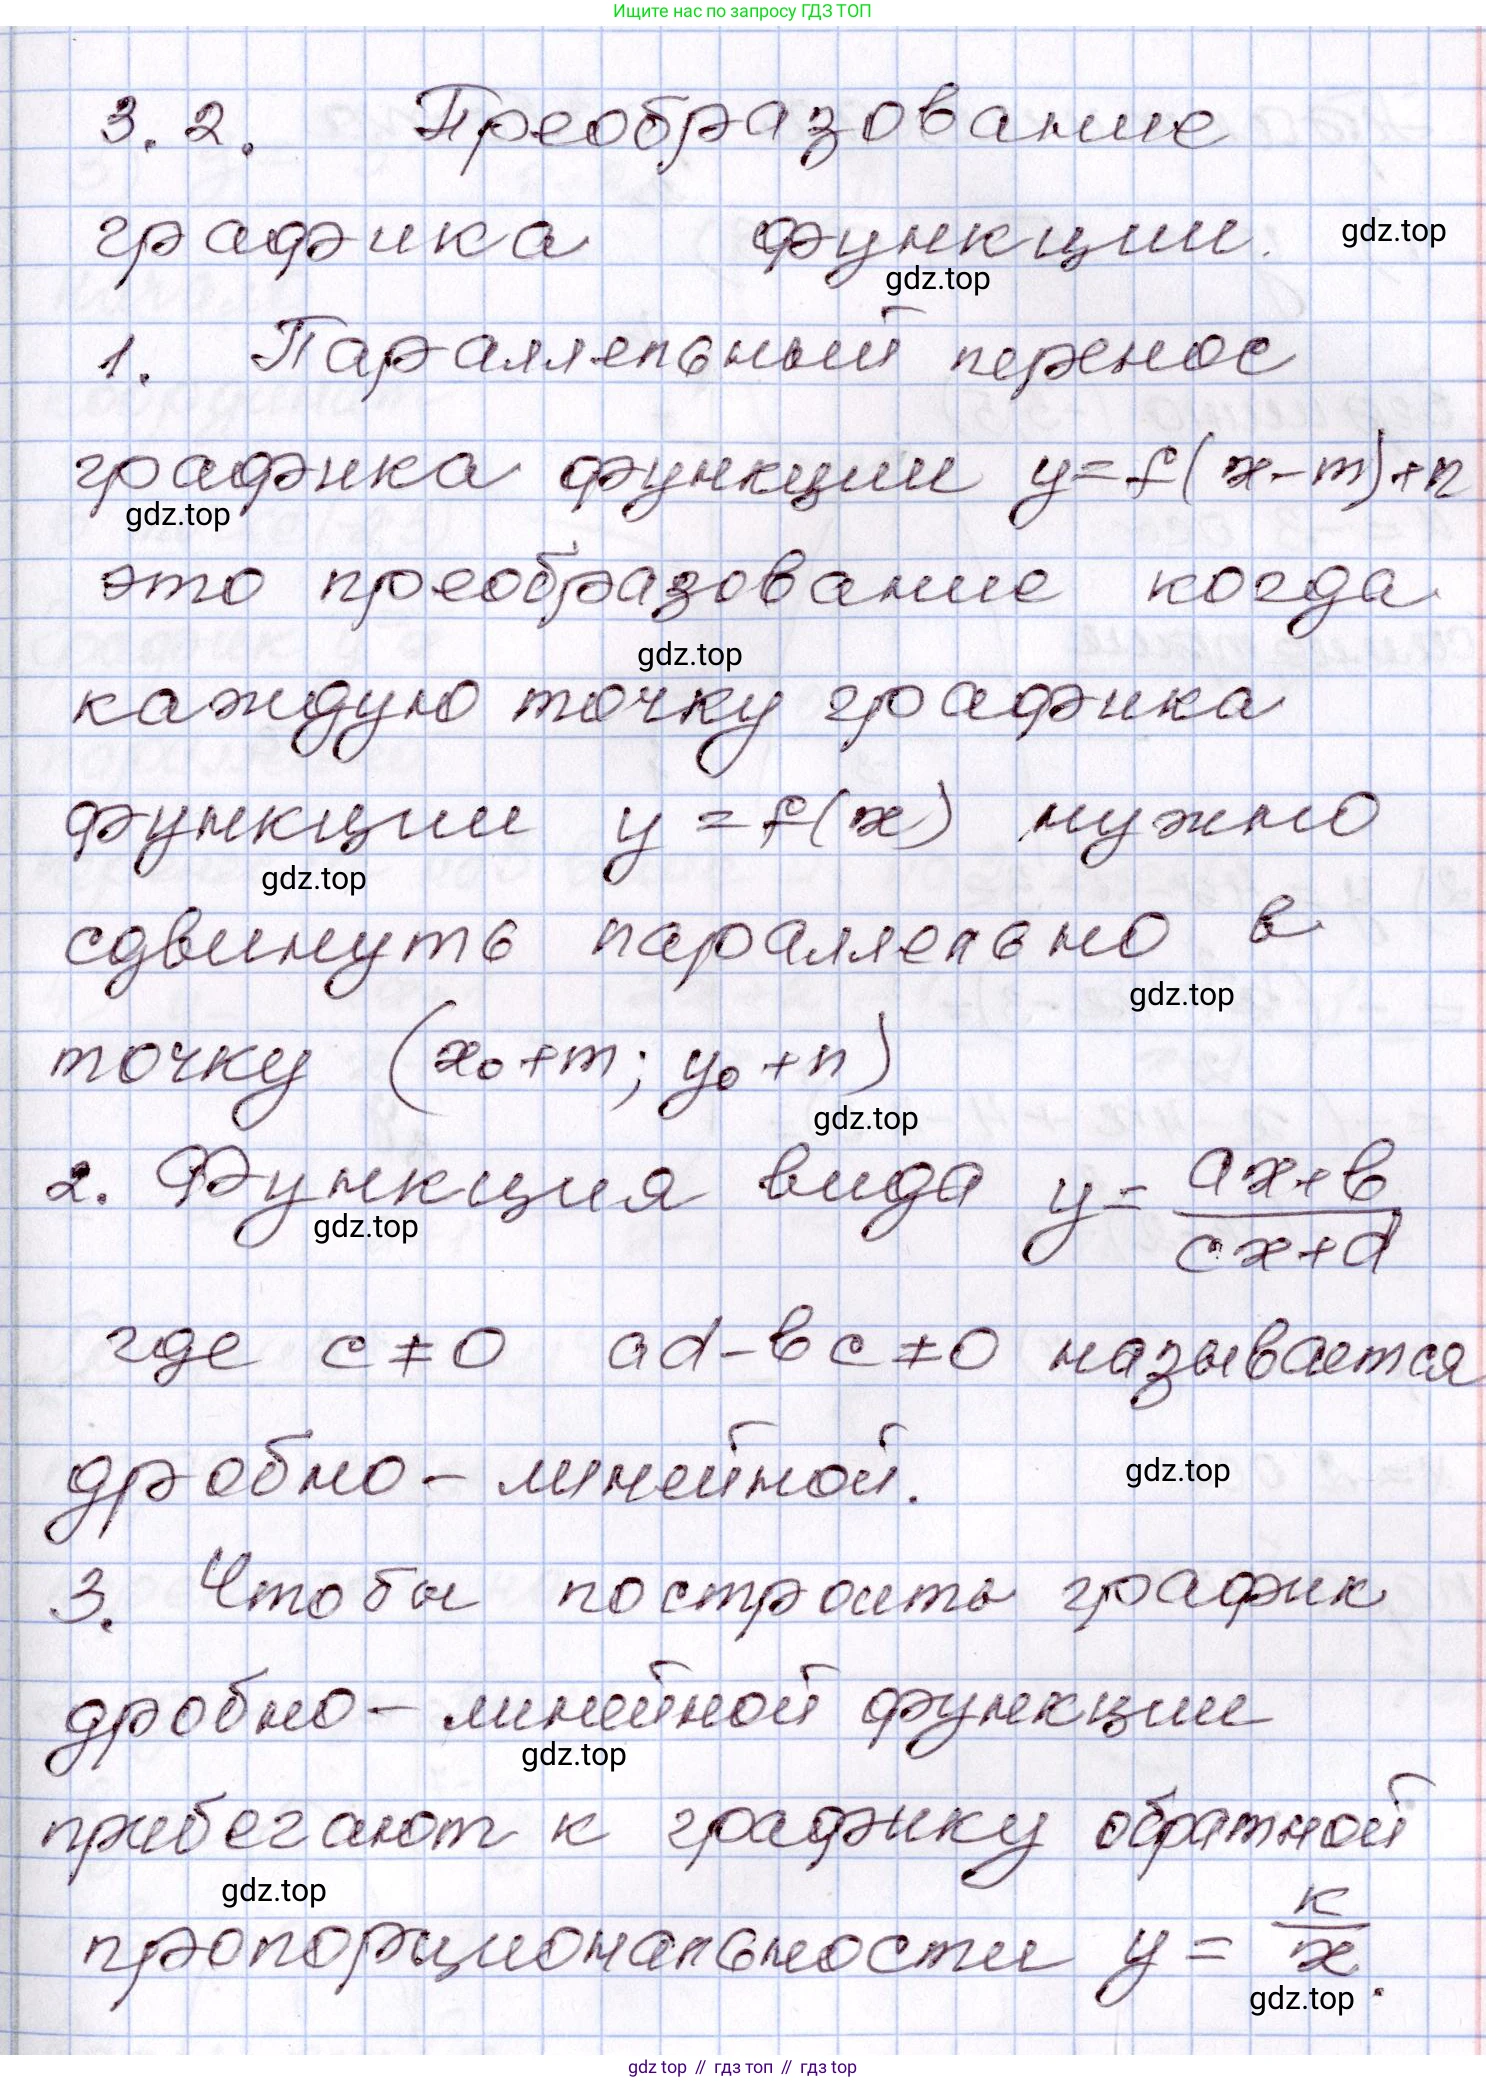 Ищите нас по запросу ГДЗ ТОП
3.2. Преобразование
графика функции.
gdz.top
gdz.top
1. Параллельный перенос
графика функции y=f(x-m)+n
gdz.top
это преобразование когда
gdz.top
каждую точку графика
функции y=f(x) нужно
gdz.top
сдвинуть параллельно в
gdz.top
точку (x₀+m; y₀+n)
gdz.top
2. Функция вида y= (ax+b)/(cx+d)
gdz.top
где c≠0 ad-bc≠0 называется
дробно-линейной.
gdz.top
3. Чтобы построить график
дробно-линейной функции
gdz.top
прибегают к графику обратной
gdz.top
пропорциональности y = к/x.
gdz.top
gdz top // гдз топ // гдз top